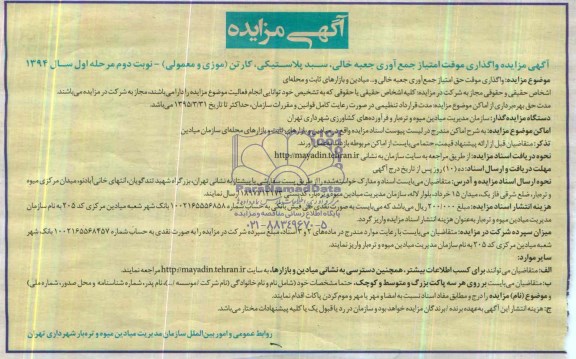 آگهی مزایده
آگهی مزایده واگذاری موقت امتیاز جمع آوری جعبه خالی، سبد پلاستیکی، کارتن (موزی و معمولی) - نوبت دوم مرحله اول سال ۱۳۹۴
موضوع مزایده: واگذاری موقت حق امتیاز جمع‌آوری جعبه خالی و.. میادین و بازارهای ثابت و محله‌ای
اشخاص حقیقی و حقوقی مجاز به شرکت در مزایده: کلیه اشخاص حقیقی یا حقوقی که به تشخیص خود توانایی انجام فعالیت موضوع مزایده را دارا می‌باشند، مجاز به شرکت در مزایده می‌باشند.
مدت حق بهره‌برداری از اماکن موضوع مزایده: مدت قرارداد تنظیمی در صورت رعایت کامل قوانین و مقررات سازمان، حداکثر تا تاریخ ۱۳۹۵/۳/۳۱ می‌باشد.
دستگاه مزایده گذار: سازمان مدیریت میادین میوه و تره‌بار و فرآورده‌های کشاورزی شهرداری تهران
اماکن موضوع مزایده: به شرح اماکن مندرج در لیست پیوست اسناد مزایده واقع در میادین و بازارهای ثابت و بازارهای محله‌ای سازمان میادین
تذکر: متقاضیان قبل از ارائه پیشنهاد قیمت، حتما می‌بایست از اماکن مربوطه بازدید
نحوه دریافت اسناد مزایده: از طریق مراجعه به سایت سازمان به نشانی http://mayadin.tehran.ir
مهلت دریافت و ارسال اسناد: ده (۱۰) روز پس از تاریخ درج آگهی
نحوه ارسال اسناد مزایده و آدرس: متقاضیان می‌بایست اسناد و مدارک خواسته شده را از طریق پست سفارشی یا پیشتاز به نشانی تهران، بزرگراه شهید تندگویان، انتهای خانی‌آبادنو، میدان مرکزی میوه
و تره‌بار، ضلع شرقی فاز یک، میدان ۱۵ خرداد، بلوار
هزینه انتشار اسناد مزایده: مبلغ ۲۰۰/۰۰۰ ریال می‌باشد که می‌بایست به صورت نقدی طی فیش بانکی به حساب شماره ۱۰۰۲۱۶۵۵۶۸۵۸ بانک شهر شعبه میادین مرکزی کد ۲۰۵ به نام سازمان
مدیریت میادین میوه و تره‌بار به‌عنوان هزینه انتشار اسناد مزایده واریز گردد.
میزان سپرده شرکت در مزایده: متقاضیان می‌بایست با رعایت موارد مندرج در ماده‌های ۲ و ۳ اسناد، مبلغ سپرده شرکت در مزایده را به صورت نقدی به حساب شماره ۱۰۰۲۱۶۵۵۶۸۴۵۷ بانک شهر
شعبه میادین مرکزی کد ۲۰۵ به نام سازمان مدیریت میادین میوه و تره‌بار واریز نمایند.
سایر موارد:
الف: متقاضیان می‌توانند برای کسب اطلاعات بیشتر، همچنین دسترسی به نشانی میادین و بازارها، به سایت http://mayadin.tehran.ir مراجعه نمایند.
ب: متقاضیان می‌بایست بر روی هر سه پاکت بزرگ و متوسط و کوچک، حتما مشخصات خود (شامل نام و نام خانوادگی / نام شرکت / موسسه / نام پدر، شماره شناسنامه و محل صدور، شماره ملی)
و موضوع (نام) مزایده را درج و مطابق مفاد اسناد نسبت به امضا و مهر یا مهر و موم کردن پاکات اقدام نمایند.
ج: هزینه انتشار این آگهی به عهده برنده / برندگان مزایده خواهد بود و سازمان در رد یا قبول یک یا کلیه پیشنهادات مختار می‌باشد.
روابط عمومی و امور بین‌الملل سازمان مدیریت میادین میوه و تره‌بار شهرداری تهران
ParsNamadData
پایگاه اطلاع رسانی مناقصه و مزایده
۰۲۱-۸۸۳۴۹۶۷۰-۵